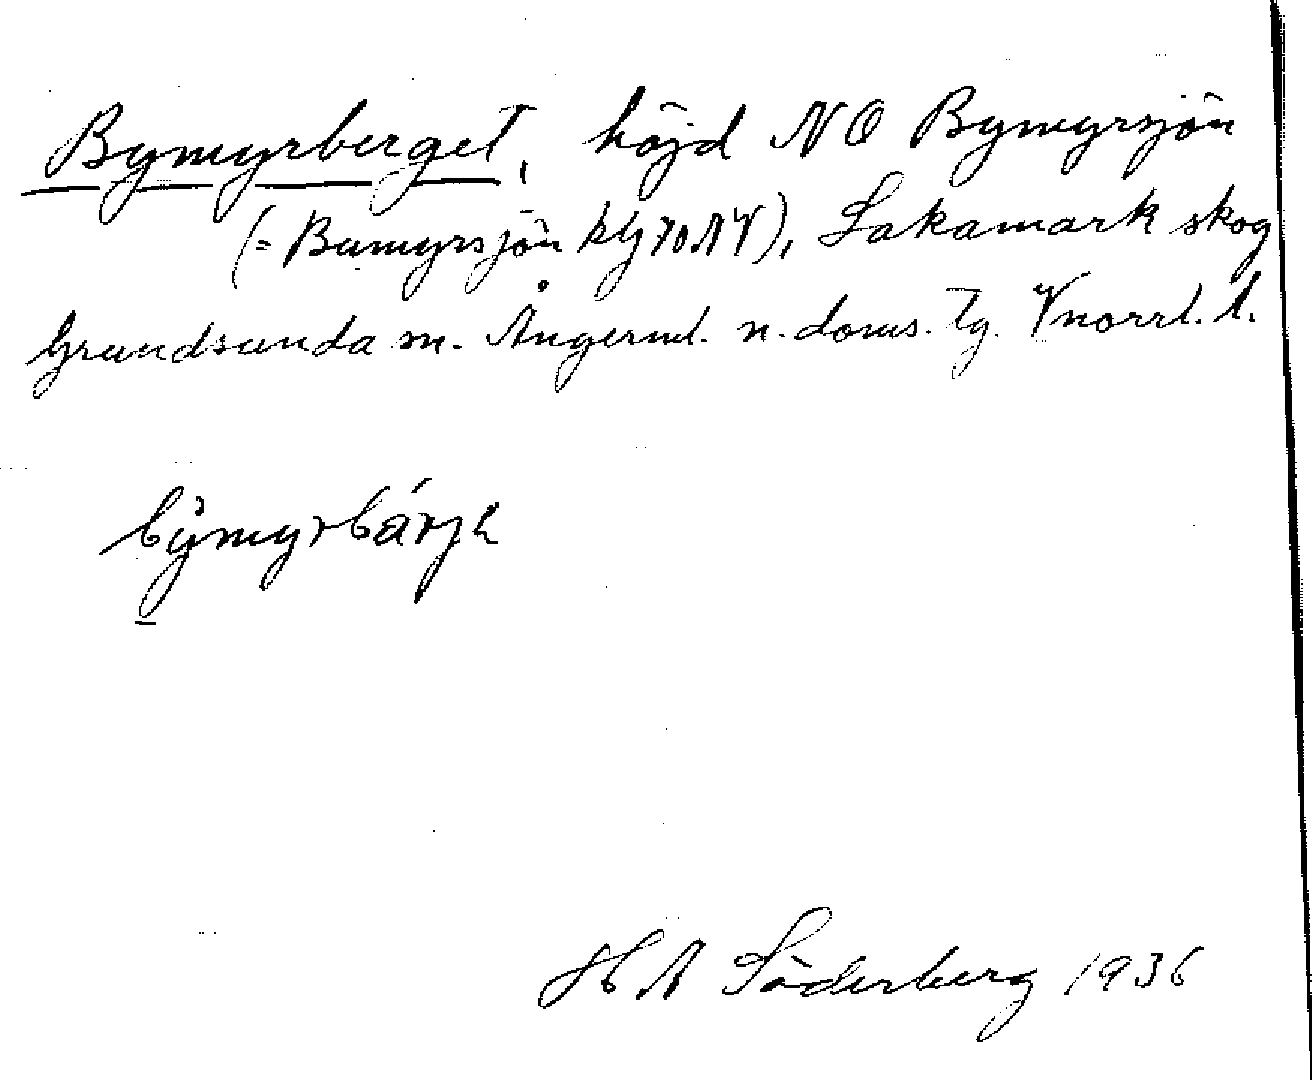 Bymyrberget, höjd NO Bymyrsjön
(= Bumyrsjön kbl 70 NV), Sakamark skog
Grundsunda sn. Ångerml. n. doms. tg. Vnorrl. l.
bỳmyrbárjh
H A Söderberg 1936